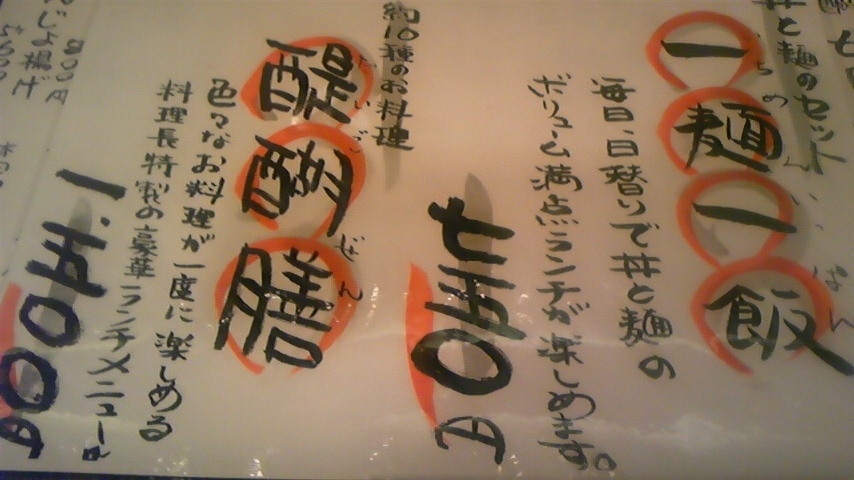 丼と麺のセット
いちめんいっぱん
一麺一飯
毎日、日替りで丼と麺の
ボリューム満点ランチが楽しめます。
七五〇円
約10種のお料理
だいごぜん
醍醐膳
色々なお料理が一度に楽しめる
料理長特製の豪華ランチメニュー。
一、五〇〇円
じょ揚げ
800円